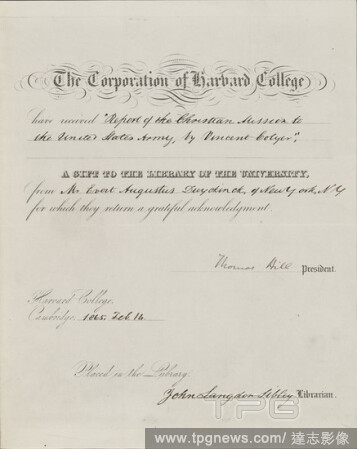 The Corporation of Harvard College
have received "Report of the Christian Mission to
the United States Army, by Vincent Colyer".
A GIFT TO THE LIBRARY OF THE UNIVERSITY,
from Mr. Evert Augustus Duyckinck, of New York, N.Y
for which they return a grateful acknowledgment.
Thomas Hill President.
Harvard College,
Cambridge. 1865. Feb. 14.
Placed in the Library.
John Langdon Sibley Librarian.
TPG
www.tpgnews.com/達志影像